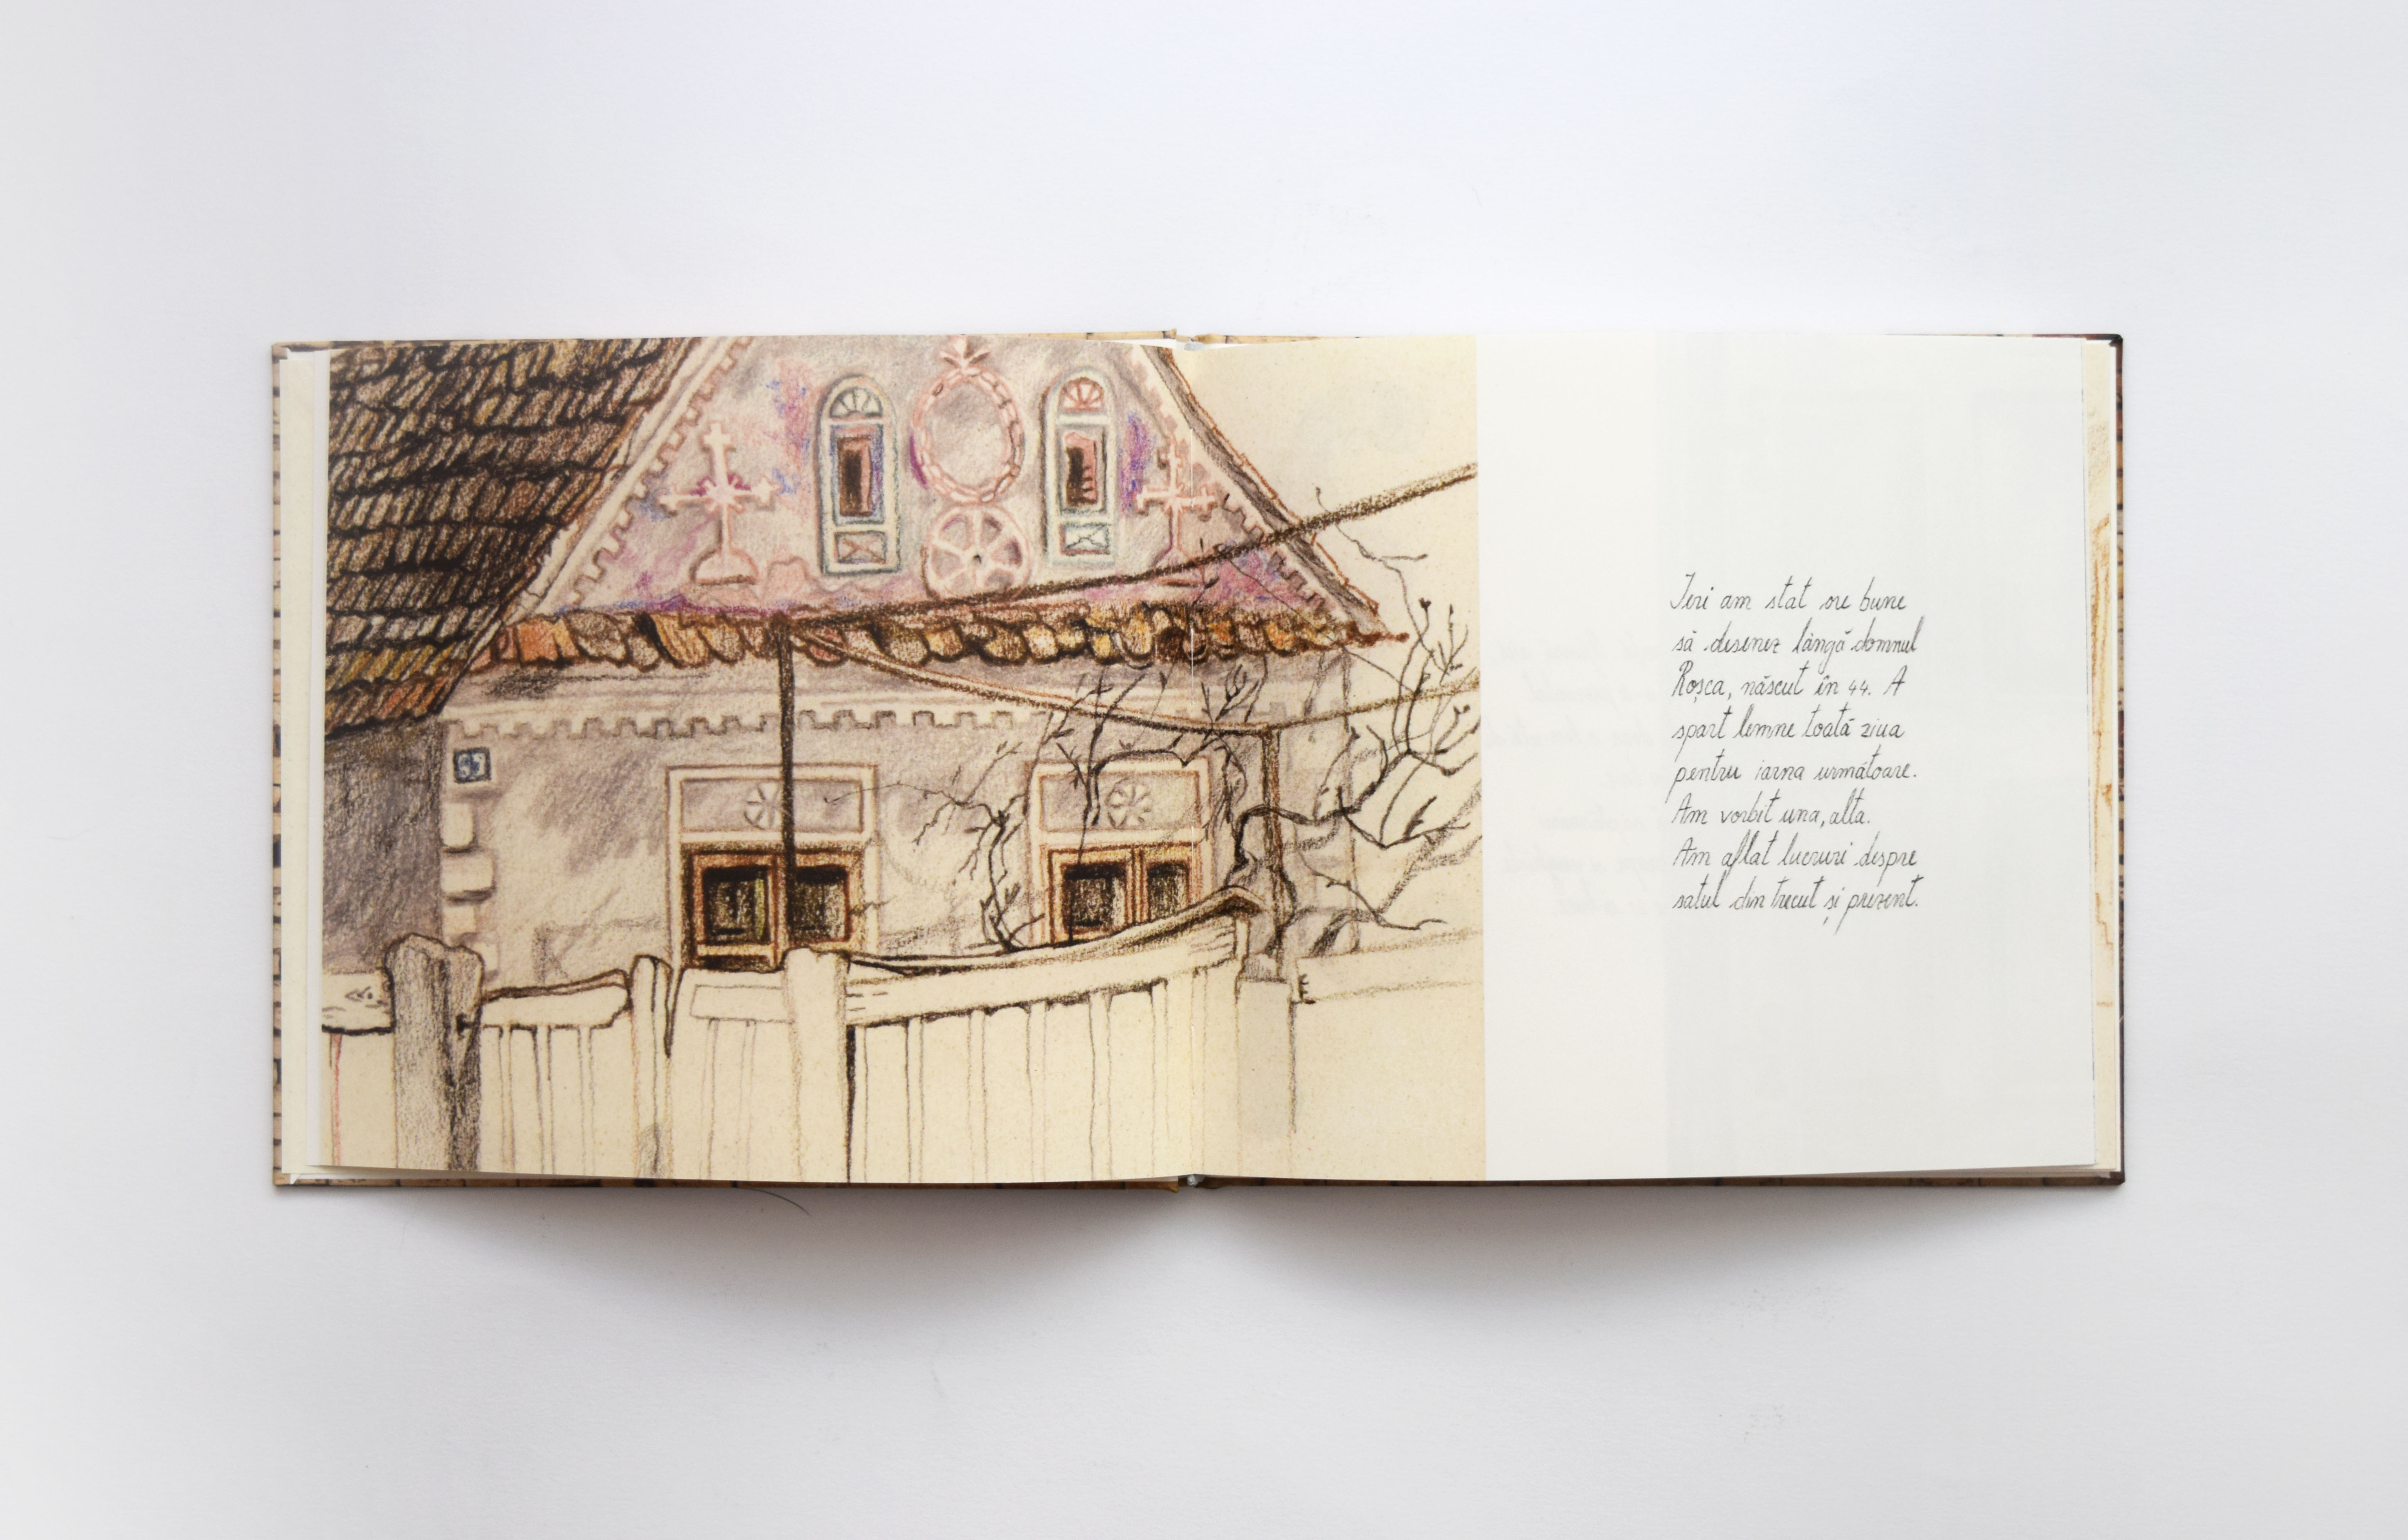 97
Ieri am stat ore bune
să desenez lângă domnul
Roșca, născut în 44. A
spart lemne toată ziua
pentru iarna următoare.
Am vorbit una, alta.
Am aflat lucruri despre
satul din trecut și prezent.